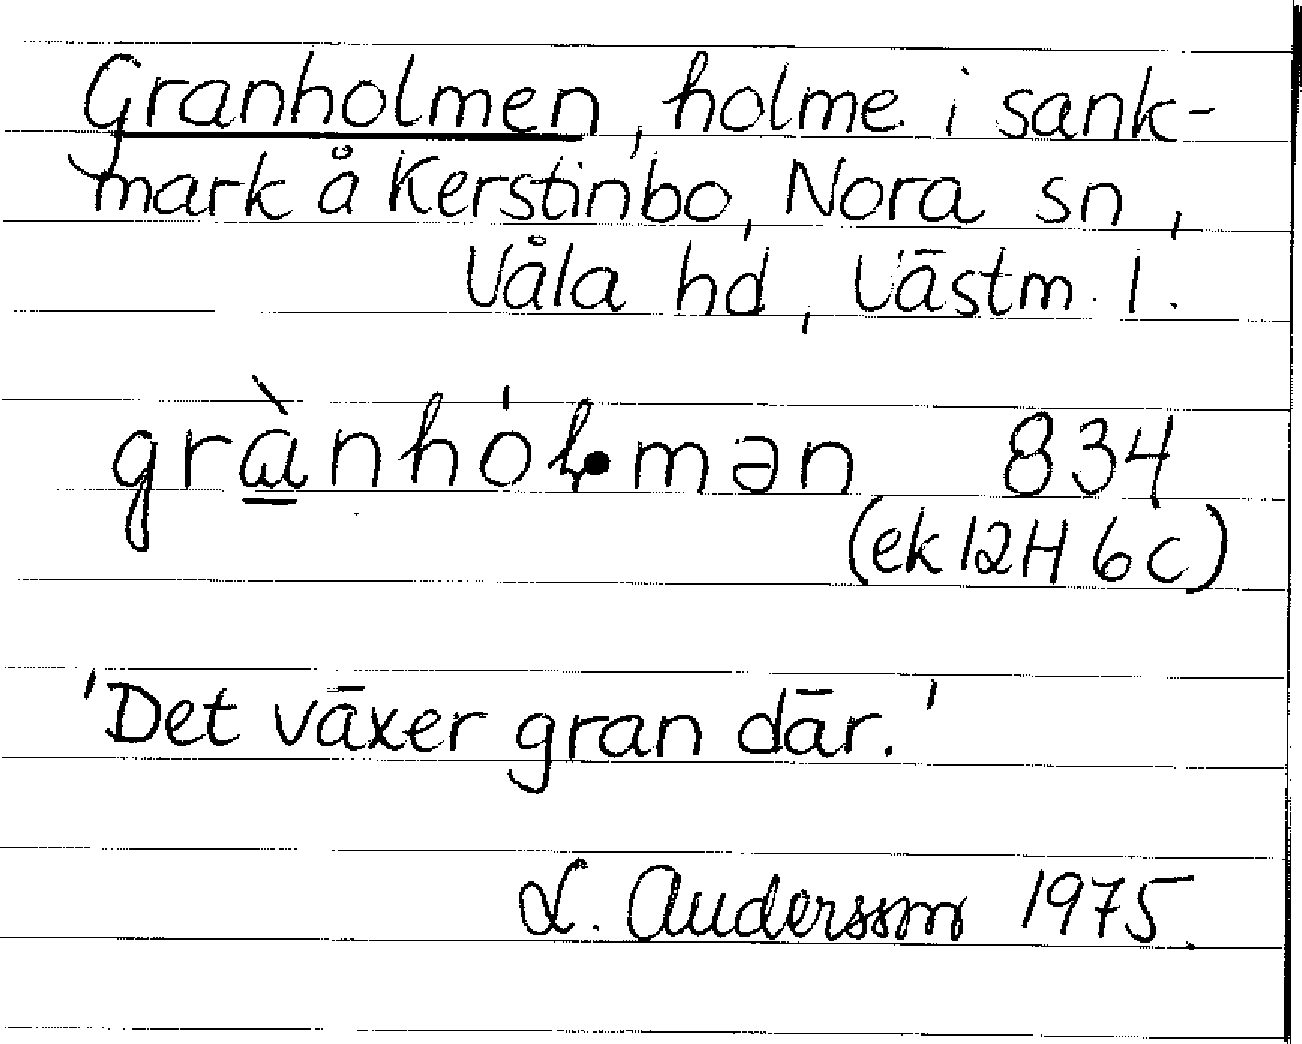 Granholmen, holme i sank-
mark å Kerstinbo, Nora sn,
Våla hd, Västm. l.
grànhól·mən 834
(ek 12H 6c)
'Det växer gran där.'
L. Andersson 1975.